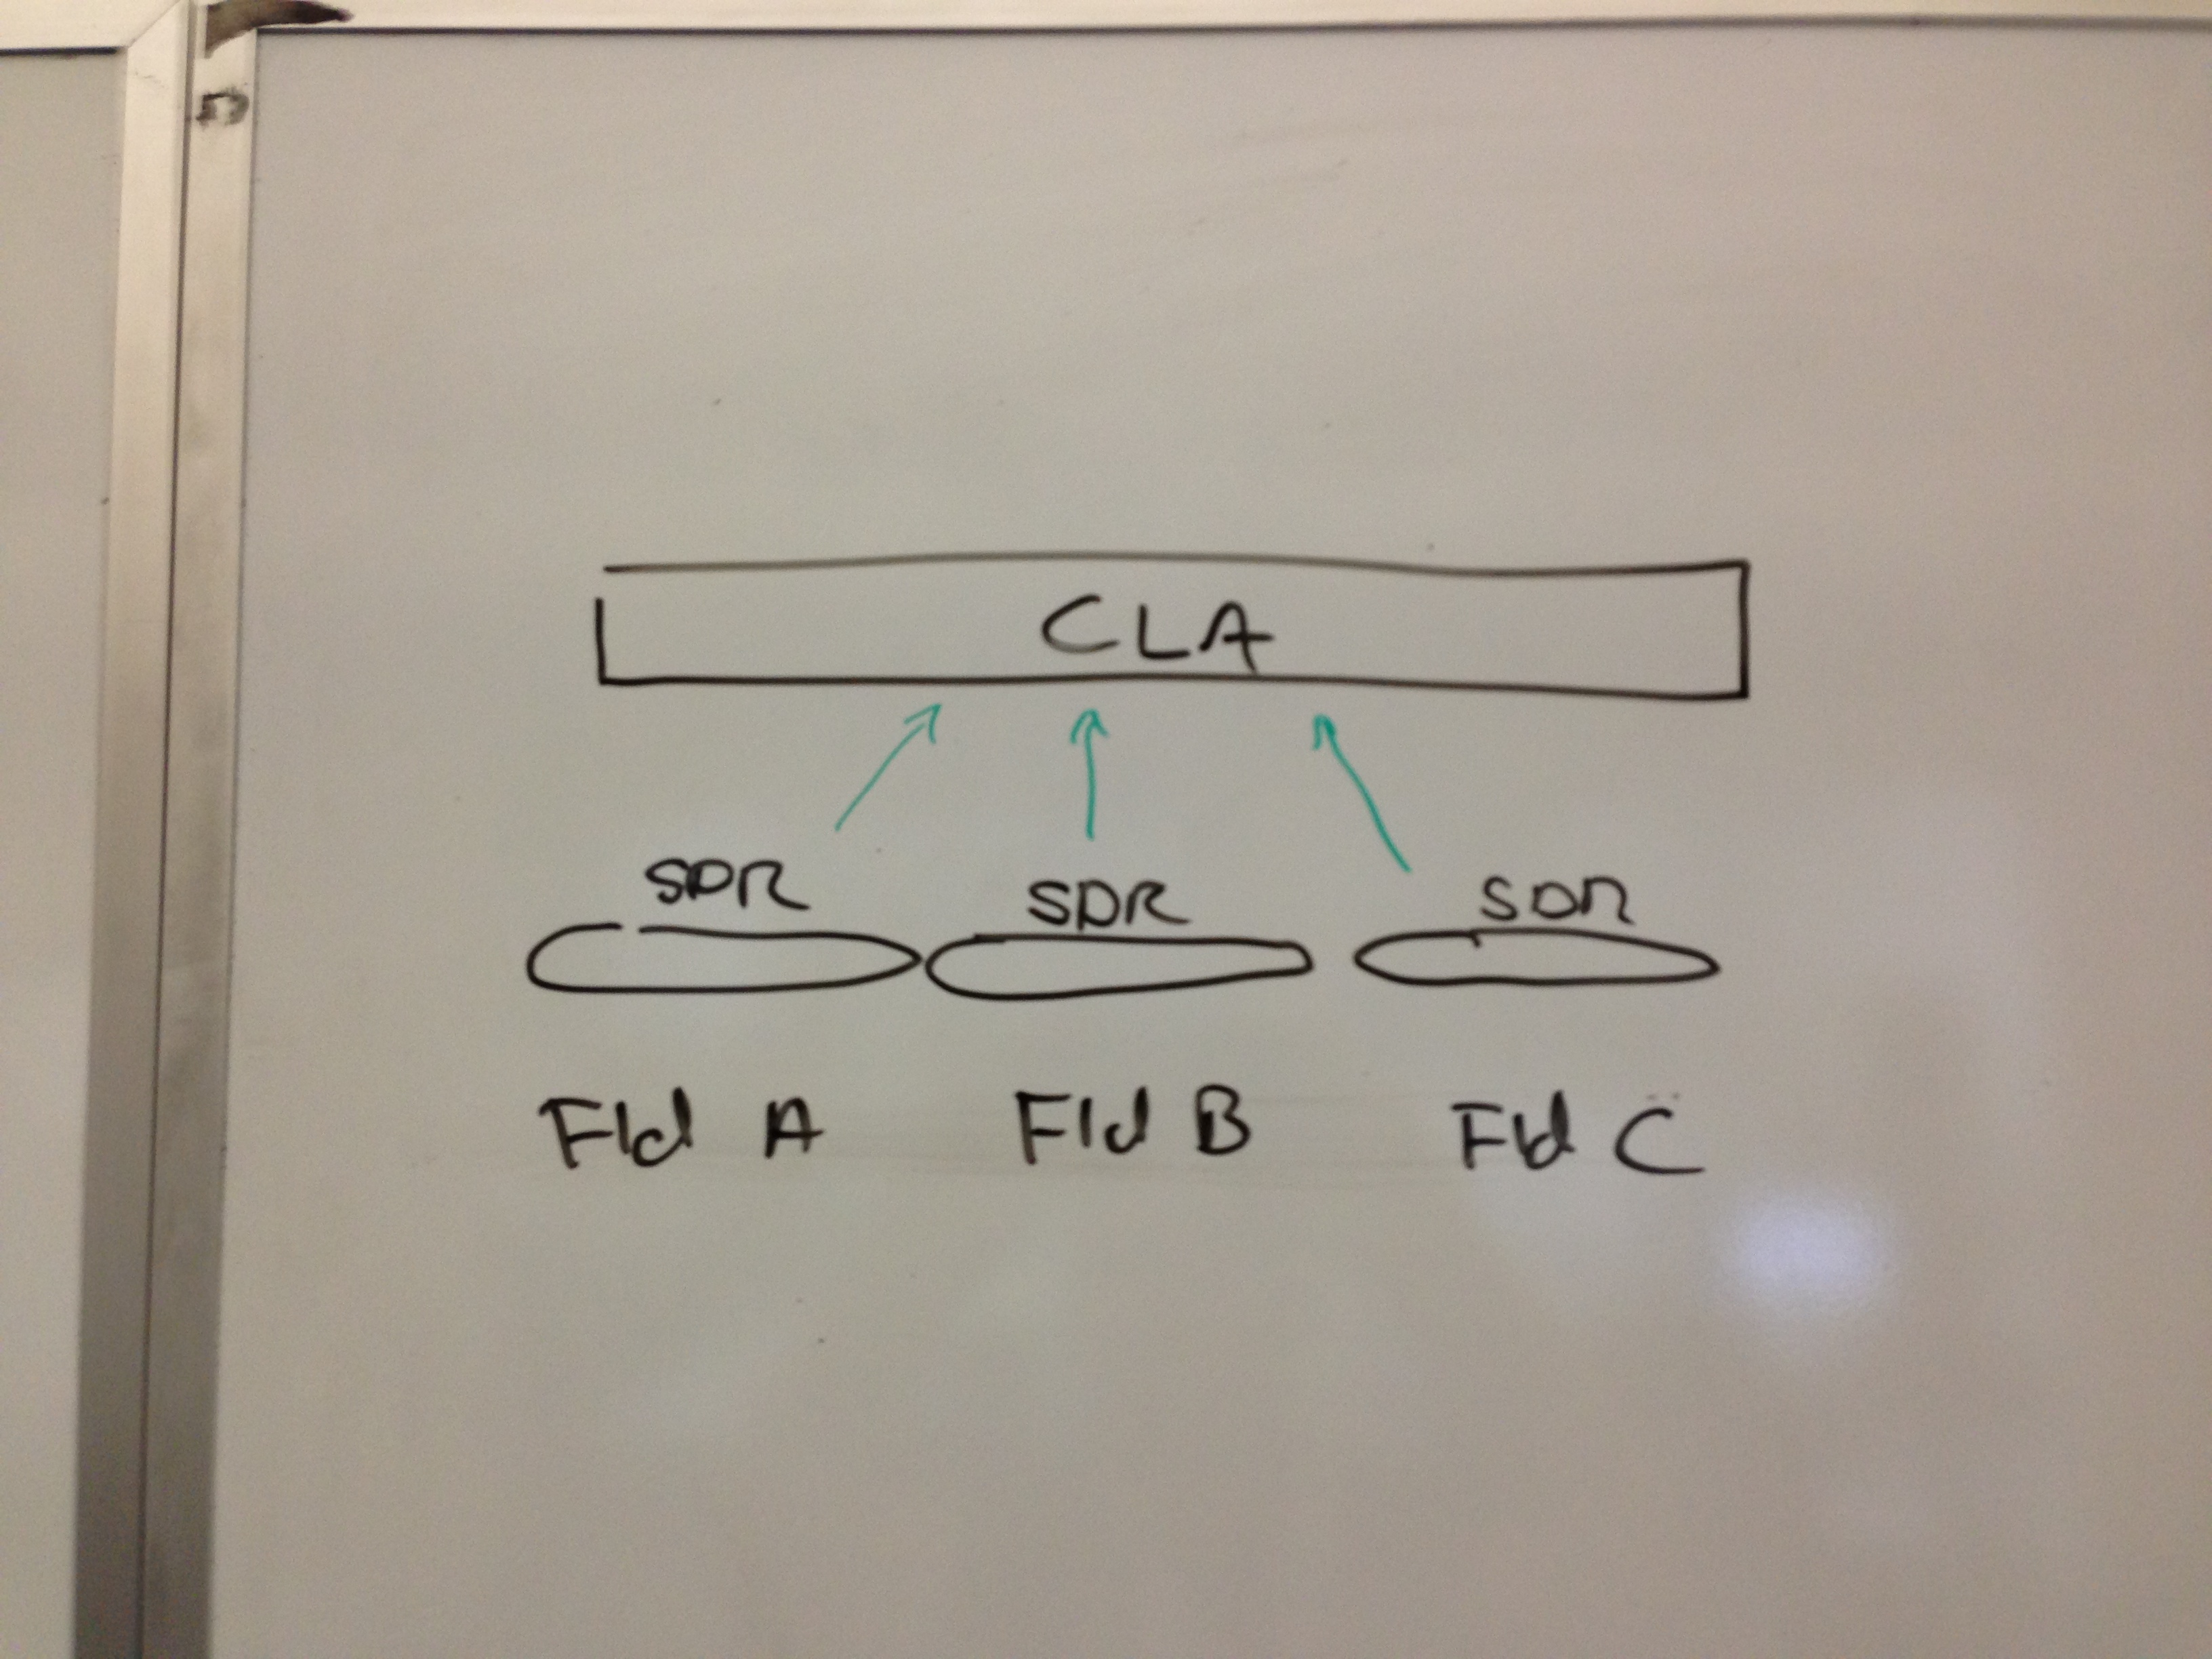 CLA
SDR SDR SDR
Fld A Fld B Fld C